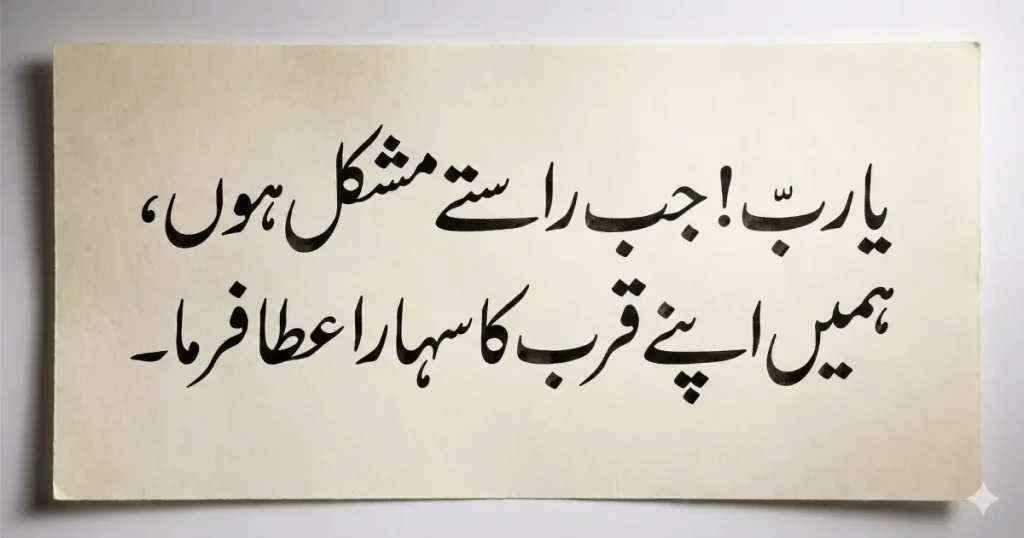 یا ربّ! جب راستے مشکل ہوں،
ہمیں اپنے قرب کا سہارا عطا فرما۔